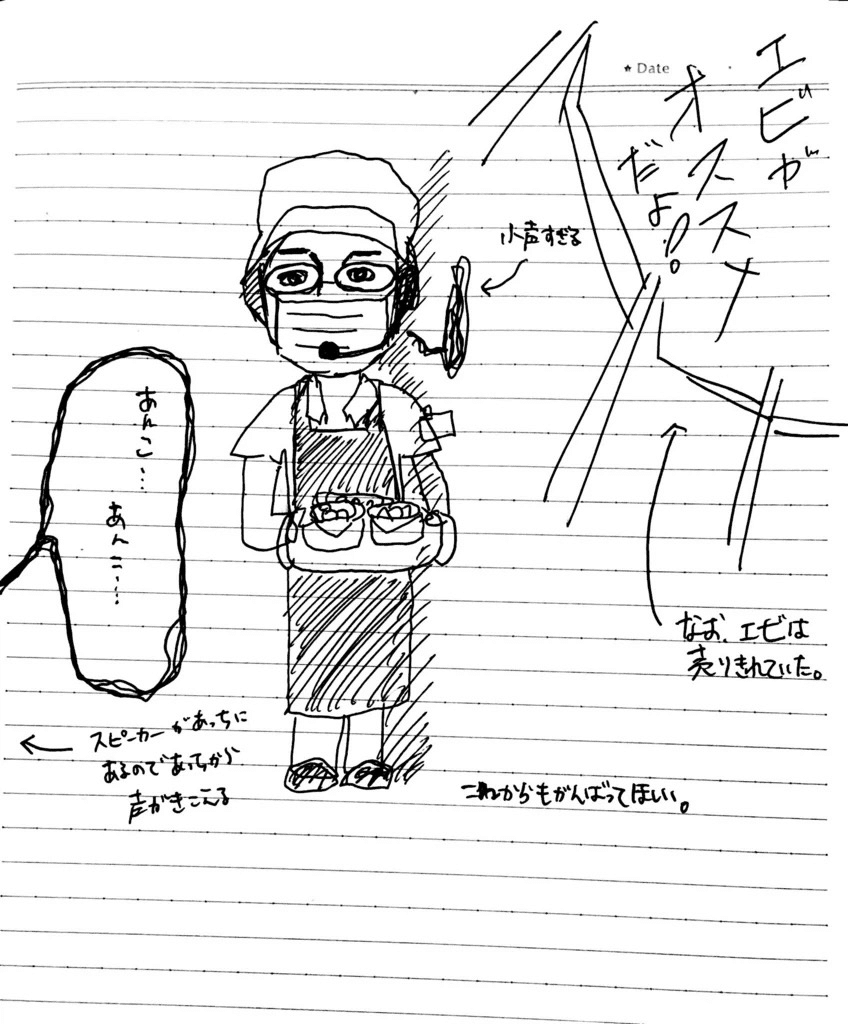 ★ Date
エビが
オススメ
だよ!
小声すぎる
あんこ…
あんこ…
なお、エビは
売りきれていた。
スピーカーがあっちに
あるのであっちから
声がきこえる
これからもがんばってほしい。